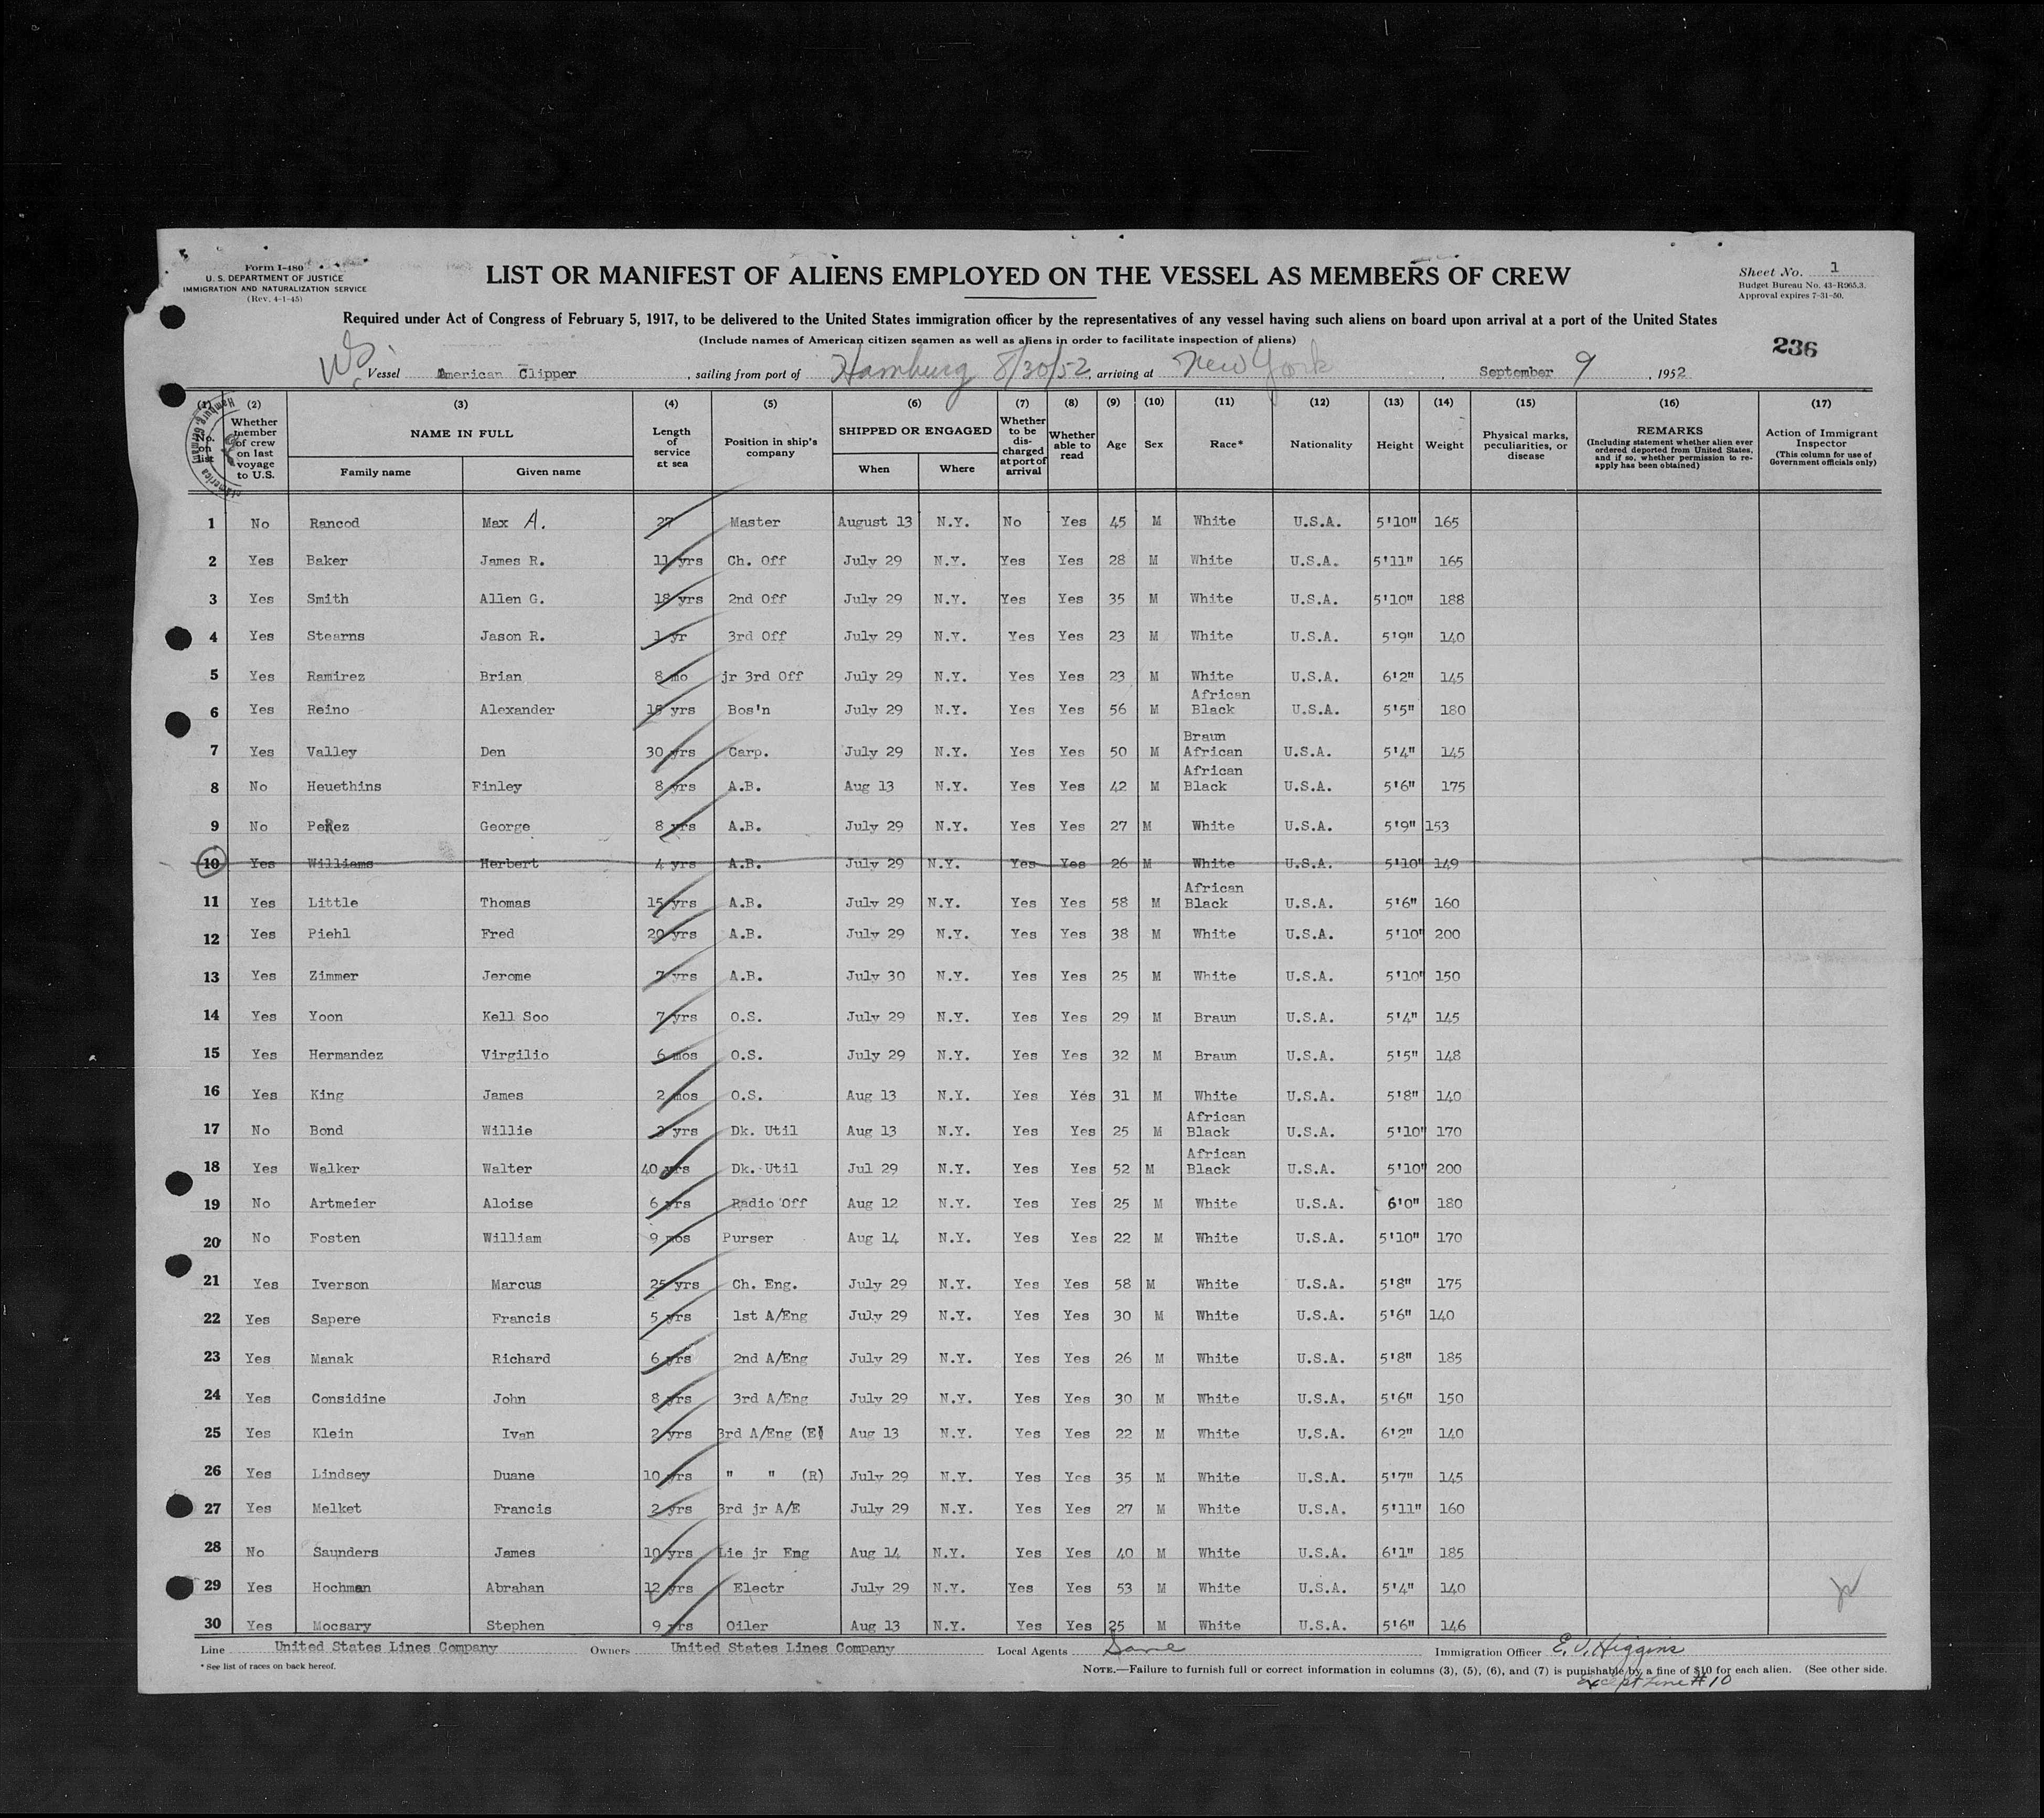 Form I-480
U. S. DEPARTMENT OF JUSTICE
IMMIGRATION AND NATURALIZATION SERVICE
(Rev. 4-1-45)
LIST OR MANIFEST OF ALIENS EMPLOYED ON THE VESSEL AS MEMBERS OF CREW
Sheet No. 1
Budget Bureau No. 43-R065.3.
Approval expires 7-31-50.
Required under Act of Congress of February 5, 1917, to be delivered to the United States immigration officer by the representatives of any vessel having such aliens on board upon arrival at a port of the United States
(Include names of American citizen seamen as well as aliens in order to facilitate inspection of aliens)
236
Vessel American Clipper, sailing from port of Hamburg 8/30/52, arriving at New York, September 9, 1952
(1) (2) (3) (4) (5) (6) (7) (8) (9) (10) (11) (12) (13) (14) (15) (16) (17)
No. on list
Whether member of crew on last voyage to U.S.
NAME IN FULL
Family name Given name
Length of service at sea
Position in ship's company
SHIPPED OR ENGAGED
When Where
Whether to be discharged at port of arrival
Whether able to read
Age
Sex
Race*
Nationality
Height
Weight
Physical marks, peculiarities, or disease
REMARKS
(Including statement whether alien ever ordered deported from United States, and if so, whether permission to reapply has been obtained)
Action of Immigrant Inspector
(This column for use of Government officials only)
1 No Rancod Max A. 27 Master August 13 N.Y. No Yes 45 M White U.S.A. 5'10" 165
2 Yes Baker James R. 11 yrs Ch. Off July 29 N.Y. Yes Yes 28 M White U.S.A. 5'11" 165
3 Yes Smith Allen G. 18 yrs 2nd Off July 29 N.Y. Yes Yes 35 M White U.S.A. 5'10" 188
4 Yes Stearns Jason R. 1 yr 3rd Off July 29 N.Y. Yes Yes 23 M White U.S.A. 5'9" 140
5 Yes Ramirez Brian 8 mo jr 3rd Off July 29 N.Y. Yes Yes 23 M White U.S.A. 6'2" 145
6 Yes Reino Alexander yrs Bos'n July 29 N.Y. Yes Yes 56 M African Black U.S.A. 5'5" 180
7 Yes Valley Den 30 yrs Carp. July 29 N.Y. Yes Yes 50 M Braun African U.S.A. 5'4" 145
8 No Heuethins Finley 8 yrs A.B. Aug 13 N.Y. Yes Yes 42 M African Black U.S.A. 5'6" 175
9 No PeRez George 8 yrs A.B. July 29 N.Y. Yes Yes 27 M White U.S.A. 5'9" 153
10 Yes Williams Herbert 4 yrs A.B. July 29 N.Y. Yes Yes 26 M White U.S.A. 5'10" 149
11 Yes Little Thomas 15 yrs A.B. July 29 N.Y. Yes Yes 58 M African Black U.S.A. 5'6" 160
12 Yes Piehl Fred 20 yrs A.B. July 29 N.Y. Yes Yes 38 M White U.S.A. 5'10" 200
13 Yes Zimmer Jerome 7 yrs A.B. July 30 N.Y. Yes Yes 25 M White U.S.A. 5'10" 150
14 Yes Yoon Kell Soo 7 yrs O.S. July 29 N.Y. Yes Yes 29 M Braun U.S.A. 5'4" 145
15 Yes Hermandez Virgilio 6 mos O.S. July 29 N.Y. Yes Yes 32 M Braun U.S.A. 5'5" 148
16 Yes King James 2 mos O.S. Aug 13 N.Y. Yes Yes 31 M White U.S.A. 5'8" 140
17 No Bond Willie 3 yrs Dk. Util Aug 13 N.Y. Yes Yes 25 M African Black U.S.A. 5'10" 170
18 Yes Walker Walter 40 yrs Dk. Util Jul 29 N.Y. Yes Yes 52 M African Black U.S.A. 5'10" 200
19 No Artmeier Aloise 6 yrs Radio Off Aug 12 N.Y. Yes Yes 25 M White U.S.A. 6'0" 180
20 No Fosten William 9 mos Purser Aug 14 N.Y. Yes Yes 22 M White U.S.A. 5'10" 170
21 Yes Iverson Marcus 25 yrs Ch. Eng. July 29 N.Y. Yes Yes 58 M White U.S.A. 5'8" 175
22 Yes Sapere Francis 5 yrs 1st A/Eng July 29 N.Y. Yes Yes 30 M White U.S.A. 5'6" 140
23 Yes Manak Richard 6 yrs 2nd A/Eng July 29 N.Y. Yes Yes 26 M White U.S.A. 5'8" 185
24 Yes Considine John 8 yrs 3rd A/Eng July 29 N.Y. Yes Yes 30 M White U.S.A. 5'6" 150
25 Yes Klein Ivan 2 yrs 3rd A/Eng (E) Aug 13 N.Y. Yes Yes 22 M White U.S.A. 6'2" 140
26 Yes Lindsey Duane 10 yrs " " (R) July 29 N.Y. Yes Yes 35 M White U.S.A. 5'7" 145
27 Yes Melket Francis 2 yrs 3rd jr A/E July 29 N.Y. Yes Yes 27 M White U.S.A. 5'11" 160
28 No Saunders James 10 yrs Lie jr Eng Aug 14 N.Y. Yes Yes 40 M White U.S.A. 6'1" 185
29 Yes Hochman Abrahan 12 yrs Electr July 29 N.Y. Yes Yes 53 M White U.S.A. 5'4" 140
30 Yes Mocsary Stephen 9 yrs Oiler Aug 13 N.Y. Yes Yes 25 M White U.S.A. 5'6" 146
Line United States Lines Company Owners United States Lines Company Local Agents Same Immigration Officer E. J. Higgins
* See list of races on back hereof.
NOTE.—Failure to furnish full or correct information in columns (3), (5), (6), and (7) is punishable by a fine of $10 for each alien. (See other side.
Except Line #10